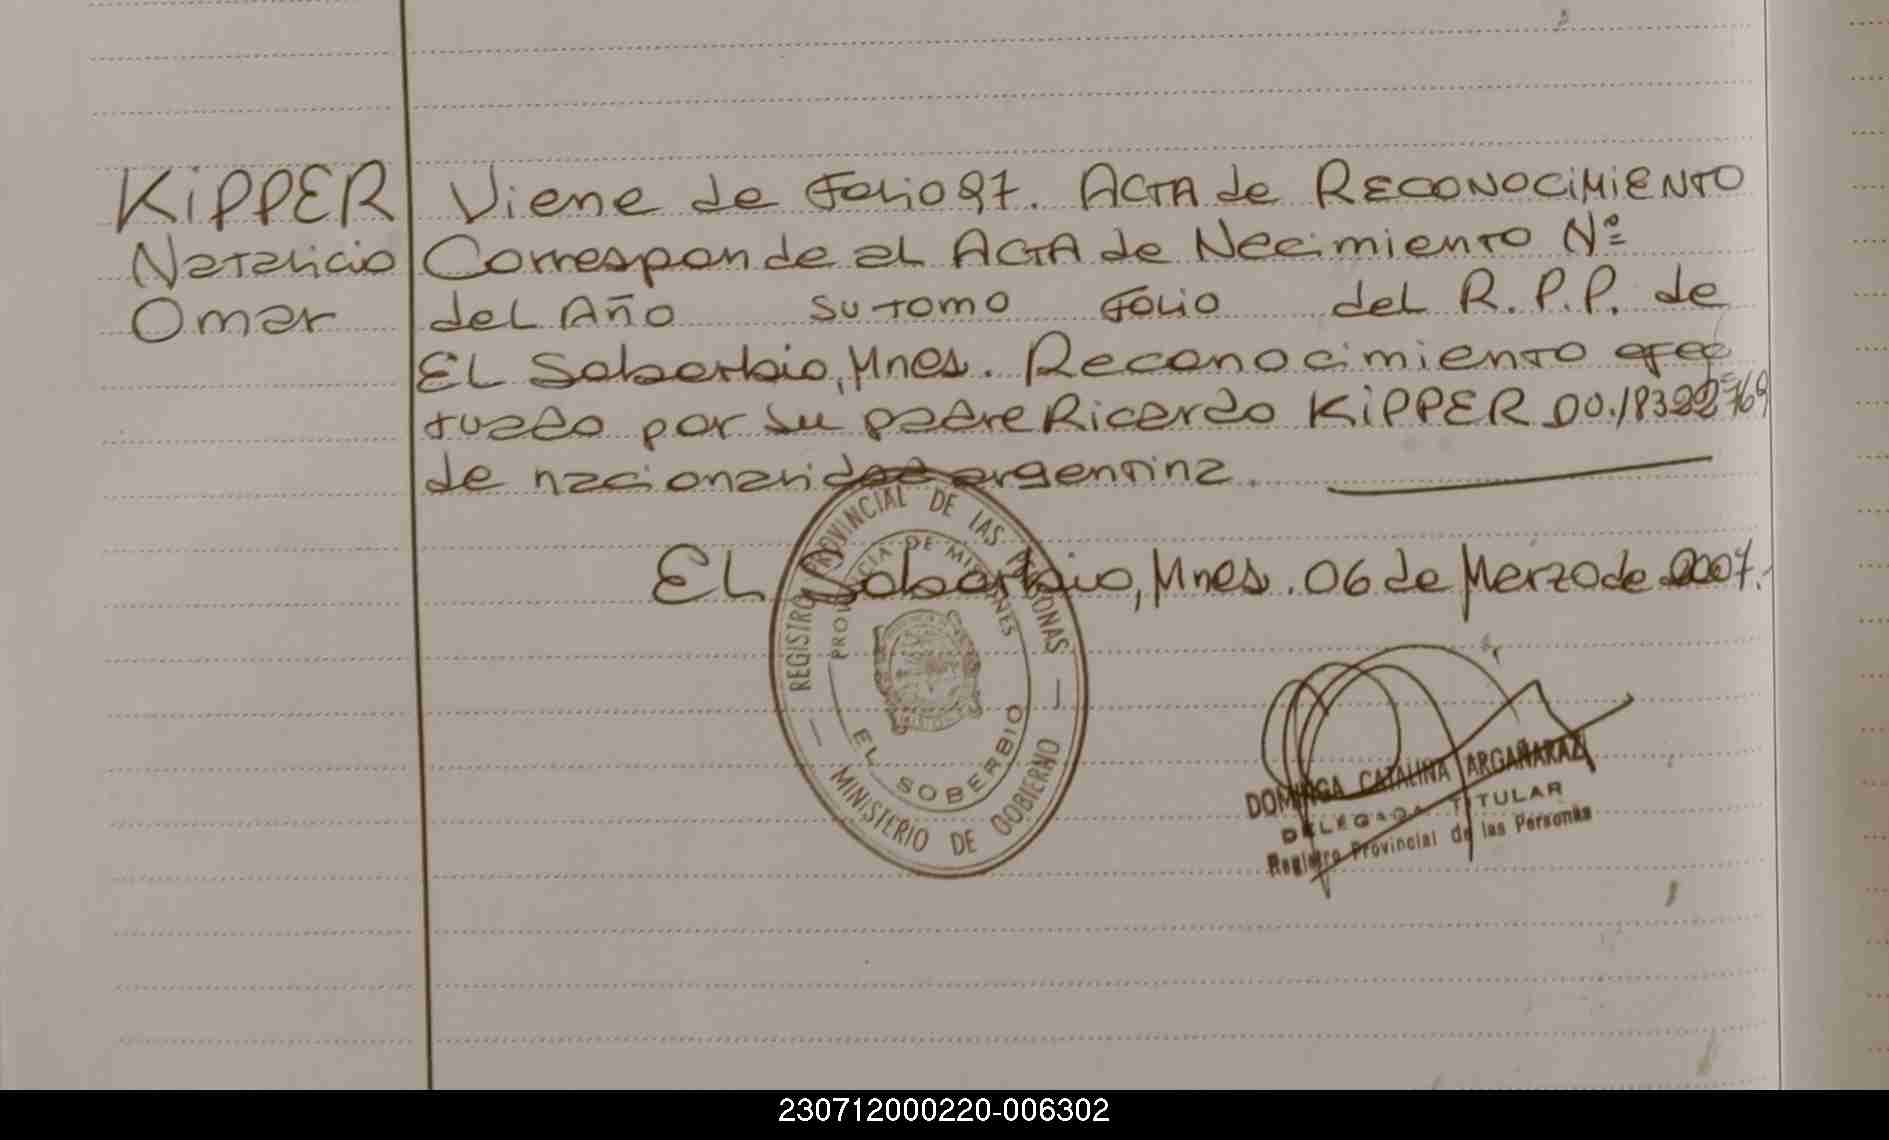 KiPPER
Natalicio
Omar
Viene de Folio 97. ACTA de RECONOCIMIENTO
Corresponde al ACTA de Nacimiento Nº
del Año su Tomo Folio del R.P.P. de
EL Soberbio, Mnes. Reconocimiento efec
tuado por su padre Ricardo KiPPER DU.18322769
de nacionalidad argentina.
EL Soberbio, Mnes. 06 de Marzo de 2007.
REGISTRO PROVINCIAL DE LAS PERSONAS
PROVINCIA DE MISIONES
EL SOBERBIO
MINISTERIO DE GOBIERNO
DOMINGA CATALINA ARGAÑARAZ
DELEGADA TITULAR
Registro Provincial de las Personas
230712000220-006302